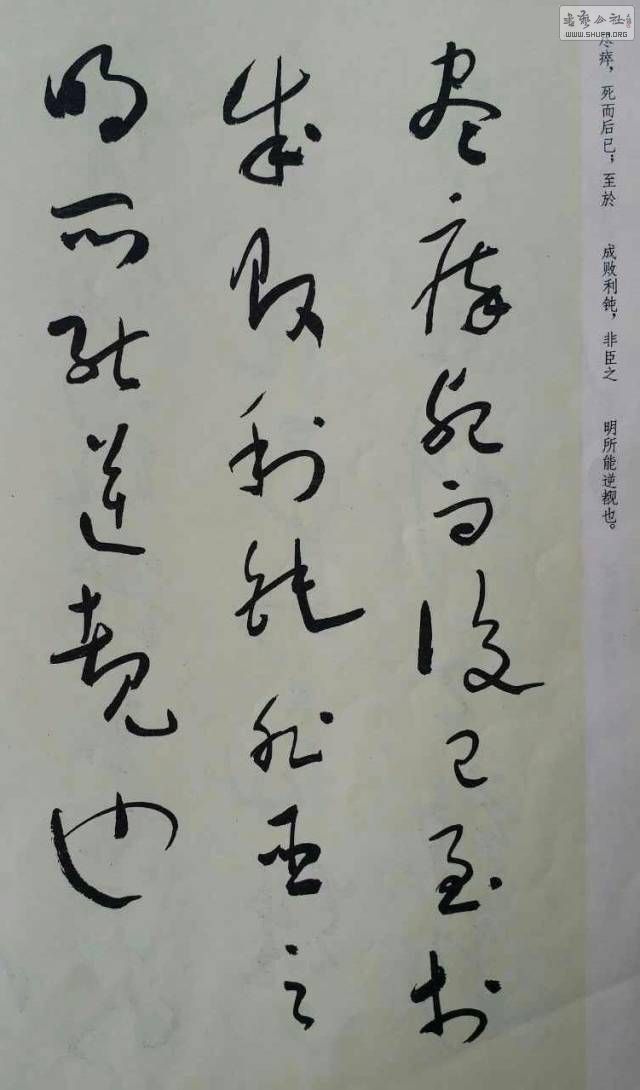 尽瘁死而後已至於
成败利钝非臣之
明所能逆覩也
尽瘁，死而后已；至於
成败利钝，非臣之
明所能逆覩也。
书艺公社
www.SHUFA.ORG